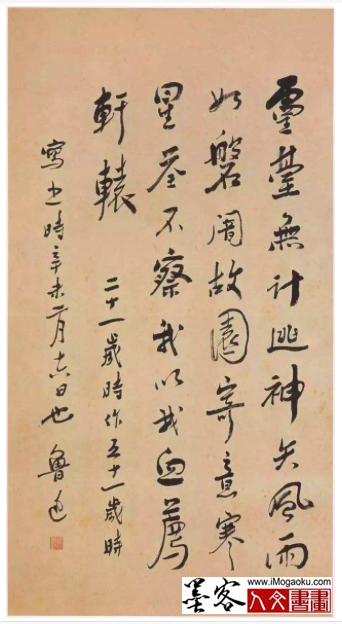 靈臺無計逃神矢風雨
如磐闇故園寄意寒
星荃不察我以我血薦
軒轅
二十一歲時作五十一歲時
寫之時辛未二月十六日也 魯迅
www.iMogaoku.com
墨客人文書畫